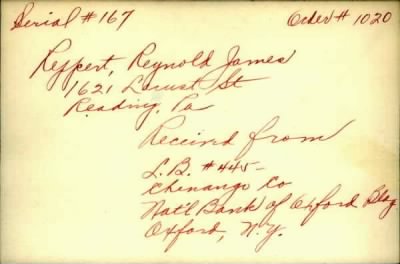 Serial #167
Order # 1020
Reppert, Reynold James
1621 Locust St
Reading, Pa
Received from
L.B. #445-
Chenango Co
Nat'l Bank of Oxford Bldg
Oxford, N.Y.